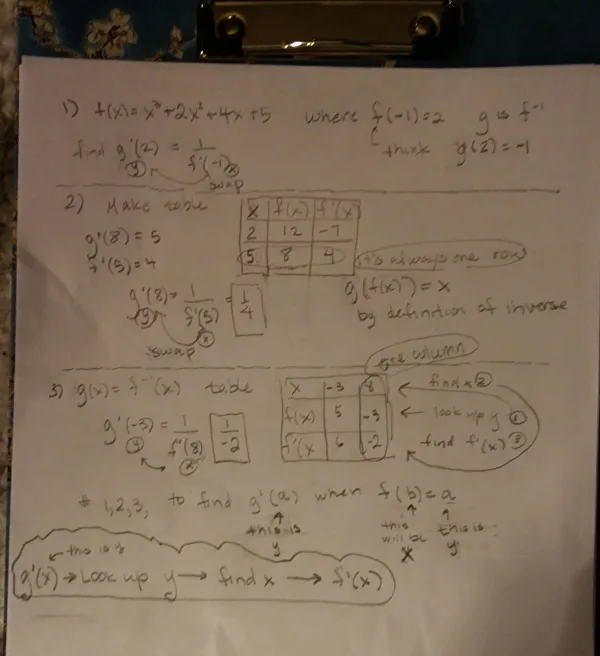 1) f(x) = x³ + 2x² + 4x + 5 where f(-1) = 2 g is f⁻¹
find g'(2) = 1 / f'(-1) think g(2) = -1
y x
swap
2) Make table
x | f(x) | f'(x)
2 | 12 | -7
5 | 8 | 4
g'(8) = 5
f'(5) = 4
it's always one row
g'(8) = 1 / f'(5) = 1/4
y x
swap
g(f(x)) = x
by definition of inverse
one column
3) g(x) = f⁻¹(x) table
x | -3 | 8 ← find x ②
f(x) | 5 | -3 ← look up y ①
f'(x | 6 | -2 find f'(x) ③
g'(-3) = 1 / f'(8) 1/-2
y x
* 1,2,3, to find g'(a) when f(b) = a
this is y
this will be x
this is y
this is y
g'(x) → Look up y → find x → f'(x)